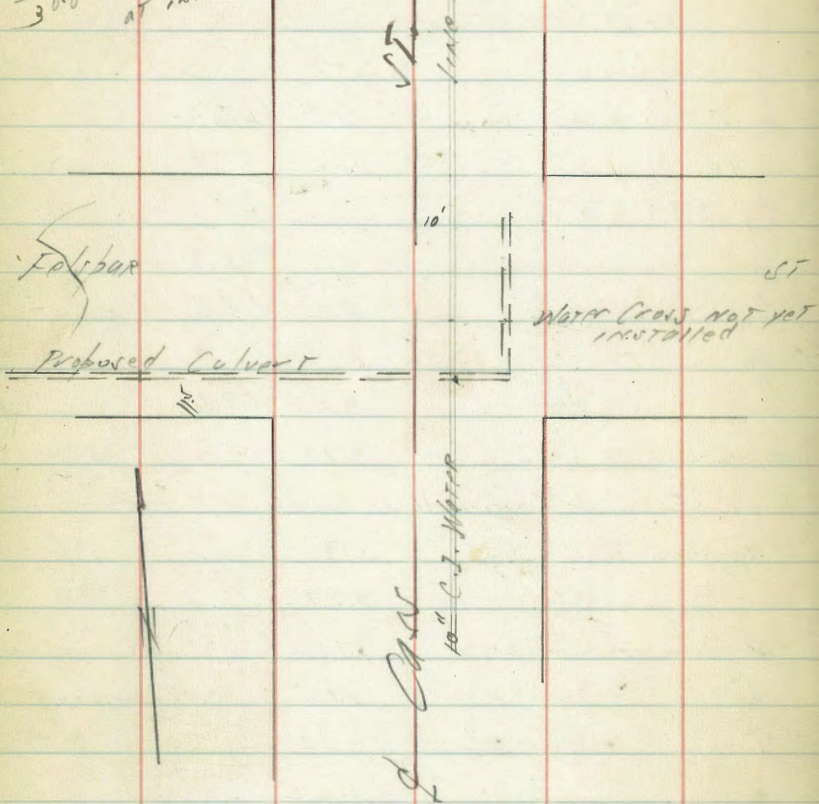 at
ST
LINE
10'
Felsbar
ST
Water Cross not yet
installed
Proposed Culvert
11.5
10" C.I. Water
Cass